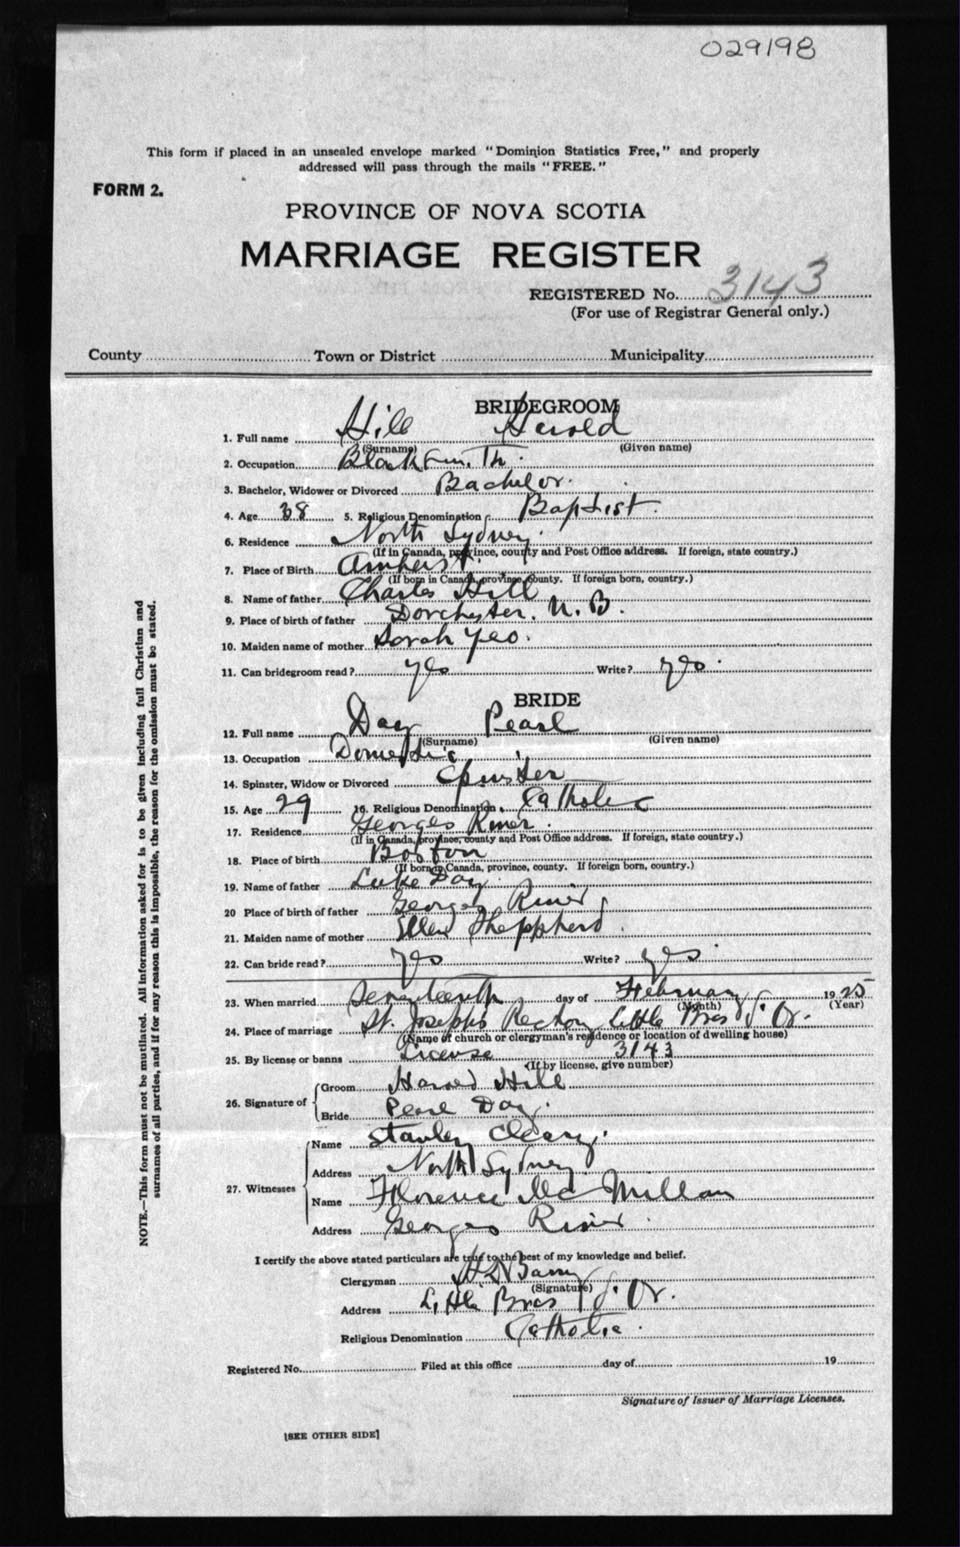 029198
This form if placed in an unsealed envelope marked "Dominion Statistics Free," and properly
addressed will pass through the mails "FREE."
FORM 2.
PROVINCE OF NOVA SCOTIA
MARRIAGE REGISTER
REGISTERED No. 3143
(For use of Registrar General only.)
County Town or District Municipality
BRIDEGROOM
1. Full name Hill Harold
(Surname) (Given name)
2. Occupation Blacksmith
3. Bachelor, Widower or Divorced Bachelor.
4. Age 38 5. Religious Denomination Baptist.
6. Residence North Sydney.
(If in Canada, province, county and Post Office address. If foreign, state country.)
7. Place of Birth Amherst.
(If born in Canada, province, county. If foreign born, country.)
8. Name of father Charles Hill
9. Place of birth of father Dorchester, N. B.
10. Maiden name of mother Sarah Yeo.
11. Can bridegroom read? yes Write? yes.
BRIDE
12. Full name Day Pearl
(Surname) (Given name)
13. Occupation Domestic
14. Spinster, Widow or Divorced Spinster
15. Age 29 16. Religious Denomination Catholic
17. Residence Georges River.
(If in Canada, province, county and Post Office address. If foreign, state country.)
18. Place of birth Boston
(If born in Canada, province, county. If foreign born, country.)
19. Name of father Luke Day
20 Place of birth of father Georges River
21. Maiden name of mother Ellen Sheppherd.
22. Can bride read? yes Write? yes.
23. When married Seventeenth day of February 1925
(Month) (Year)
24. Place of marriage St. Joseph's Rectory Little Bras d'Or.
(Name of church or clergyman's residence or location of dwelling house)
25. By license or banns License 3143
(If by license, give number)
26. Signature of
Groom Harold Hill
Bride Pearl Day.
27. Witnesses
Name Stanley Cleary.
Address North Sydney
Name Florence McMillan
Address Georges River.
I certify the above stated particulars are true to the best of my knowledge and belief.
Clergyman Barry
(Signature)
Address Little Bras d'Or.
Religious Denomination Catholic.
Registered No. Filed at this office day of 19
Signature of Issuer of Marriage Licenses.
[SEE OTHER SIDE]
NOTE.—This form must not be mutilated. All information asked for is to be given including full Christian and
surnames of all parties, and if for any reason this is impossible, the reason for the omission must be stated.